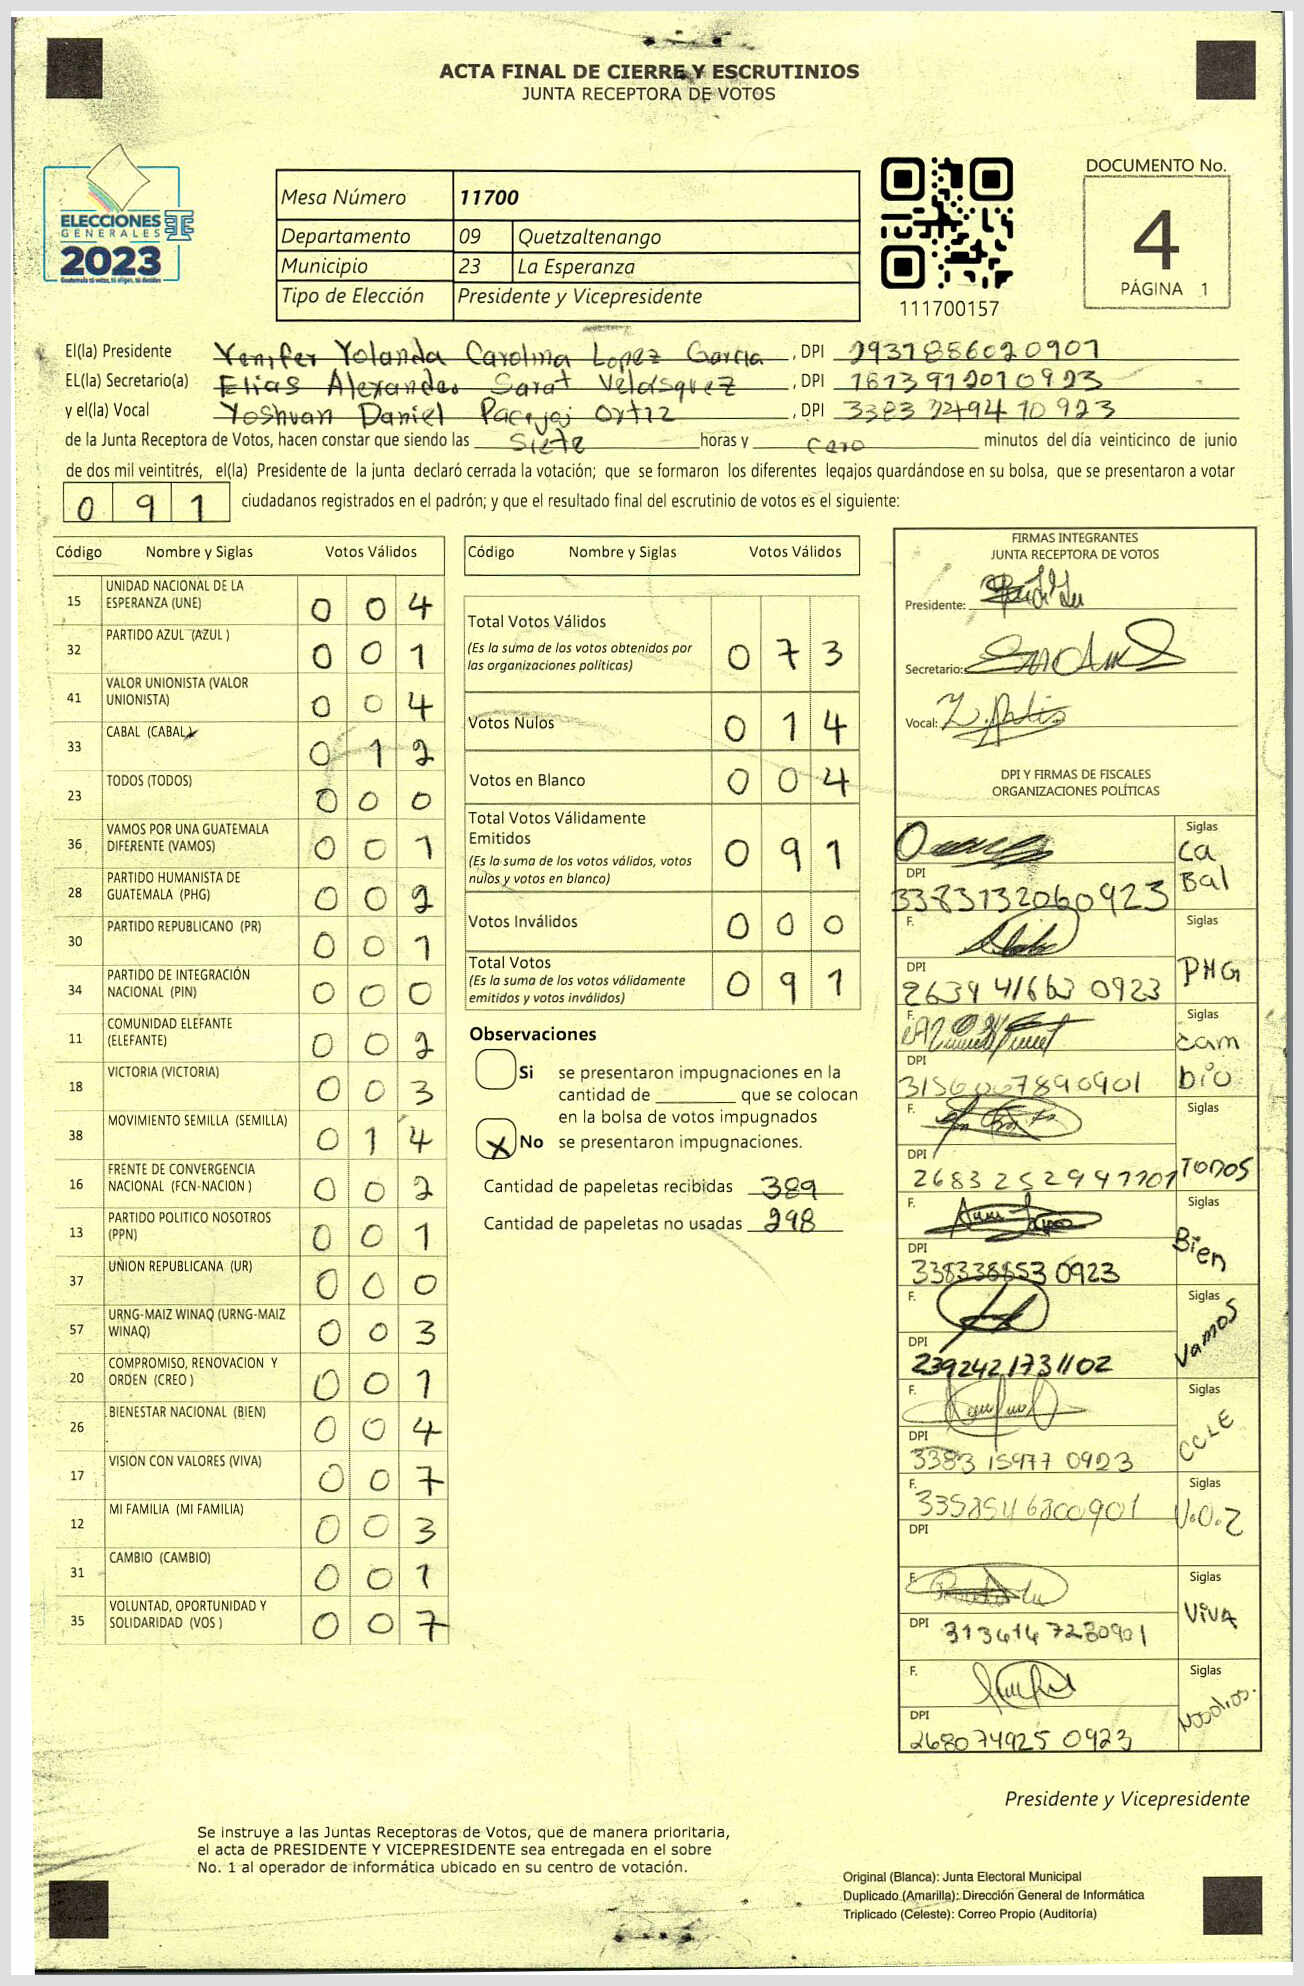 ACTA FINAL DE CIERRE Y ESCRUTINIOS
JUNTA RECEPTORA DE VOTOS
ELECCIONES
GENERALES
2023
Guatemala tú votas, tú eliges, tú decides
Mesa Número 11700
Departamento 09 Quetzaltenango
Municipio 23 La Esperanza
Tipo de Elección Presidente y Vicepresidente
111700157
DOCUMENTO No.
4
PÁGINA 1
El(la) Presidente Yenifer Yolanda Carolina Lopez Garcia , DPI 2931856020901
EL(la) Secretario(a) Elias Alexander Sarat Velásquez , DPI 1613912010923
y el(la) Vocal Yoshuan Daniel Pacajoj Ortiz , DPI 3383 2494 10923
de la Junta Receptora de Votos, hacen constar que siendo las Siete horas y cero minutos del día veinticinco de junio
de dos mil veintitrés, el(la) Presidente de la junta declaró cerrada la votación; que se formaron los diferentes legajos quardándose en su bolsa, que se presentaron a votar
0 9 1 ciudadanos registrados en el padrón; y que el resultado final del escrutinio de votos es el siguiente:
Código Nombre y Siglas Votos Válidos
15 UNIDAD NACIONAL DE LA ESPERANZA (UNE) 0 0 4
32 PARTIDO AZUL (AZUL ) 0 0 1
41 VALOR UNIONISTA (VALOR UNIONISTA) 0 0 4
33 CABAL (CABAL) 0 1 2
23 TODOS (TODOS) 0 0 0
36 VAMOS POR UNA GUATEMALA DIFERENTE (VAMOS) 0 0 1
28 PARTIDO HUMANISTA DE GUATEMALA (PHG) 0 0 2
30 PARTIDO REPUBLICANO (PR) 0 0 1
34 PARTIDO DE INTEGRACIÓN NACIONAL (PIN) 0 0 0
11 COMUNIDAD ELEFANTE (ELEFANTE) 0 0 2
18 VICTORIA (VICTORIA) 0 0 3
38 MOVIMIENTO SEMILLA (SEMILLA) 0 1 4
16 FRENTE DE CONVERGENCIA NACIONAL (FCN-NACION ) 0 0 2
13 PARTIDO POLITICO NOSOTROS (PPN) 0 0 1
37 UNION REPUBLICANA (UR) 0 0 0
57 URNG-MAIZ WINAQ (URNG-MAIZ WINAQ) 0 0 3
20 COMPROMISO, RENOVACION Y ORDEN (CREO ) 0 0 1
26 BIENESTAR NACIONAL (BIEN) 0 0 4
17 VISIÓN CON VALORES (VIVA) 0 0 7
12 MI FAMILIA (MI FAMILIA) 0 0 3
31 CAMBIO (CAMBIO) 0 0 1
35 VOLUNTAD, OPORTUNIDAD Y SOLIDARIDAD (VOS ) 0 0 7
Código Nombre y Siglas Votos Válidos
Total Votos Válidos
(Es la suma de los votos obtenidos por las organizaciones políticas) 0 7 3
Votos Nulos 0 1 4
Votos en Blanco 0 0 4
Total Votos Válidamente Emitidos
(Es la suma de los votos válidos, votos nulos y votos en blanco) 0 9 1
Votos Inválidos 0 0 0
Total Votos
(Es la suma de los votos válidamente emitidos y votos inválidos) 0 9 1
Observaciones
Si se presentaron impugnaciones en la
cantidad de ________ que se colocan
en la bolsa de votos impugnados
X No se presentaron impugnaciones.
Cantidad de papeletas recibidas 389
Cantidad de papeletas no usadas 298
FIRMAS INTEGRANTES
JUNTA RECEPTORA DE VOTOS
Presidente:
Secretario:
Vocal:
DPI Y FIRMAS DE FISCALES
ORGANIZACIONES POLÍTICAS
Siglas
Ca
Bal
DPI
3383132060923
F.
Siglas
PHG
DPI
2639 41663 0923
F.
Siglas
cam
bio
DPI
3156067890901
F.
Siglas
TODOS
DPI
2683 252947701
F.
Siglas
Bien
DPI
338338853 0923
F.
Siglas
Vamos
DPI
2392421731102
F.
Siglas
DPI
3383 15977 0923
F.
3352546800901
Siglas
V.O.Z
DPI
F.
Siglas
ViVA
DPI 3134147230901
F.
Siglas
Nosotros.
DPI
268074925 0923
Presidente y Vicepresidente
Se instruye a las Juntas Receptoras de Votos, que de manera prioritaria,
el acta de PRESIDENTE Y VICEPRESIDENTE sea entregada en el sobre
No. 1 al operador de informática ubicado en su centro de votación.
Original (Blanca): Junta Electoral Municipal
Duplicado (Amarilla): Dirección General de Informática
Triplicado (Celeste): Correo Propio (Auditoría)